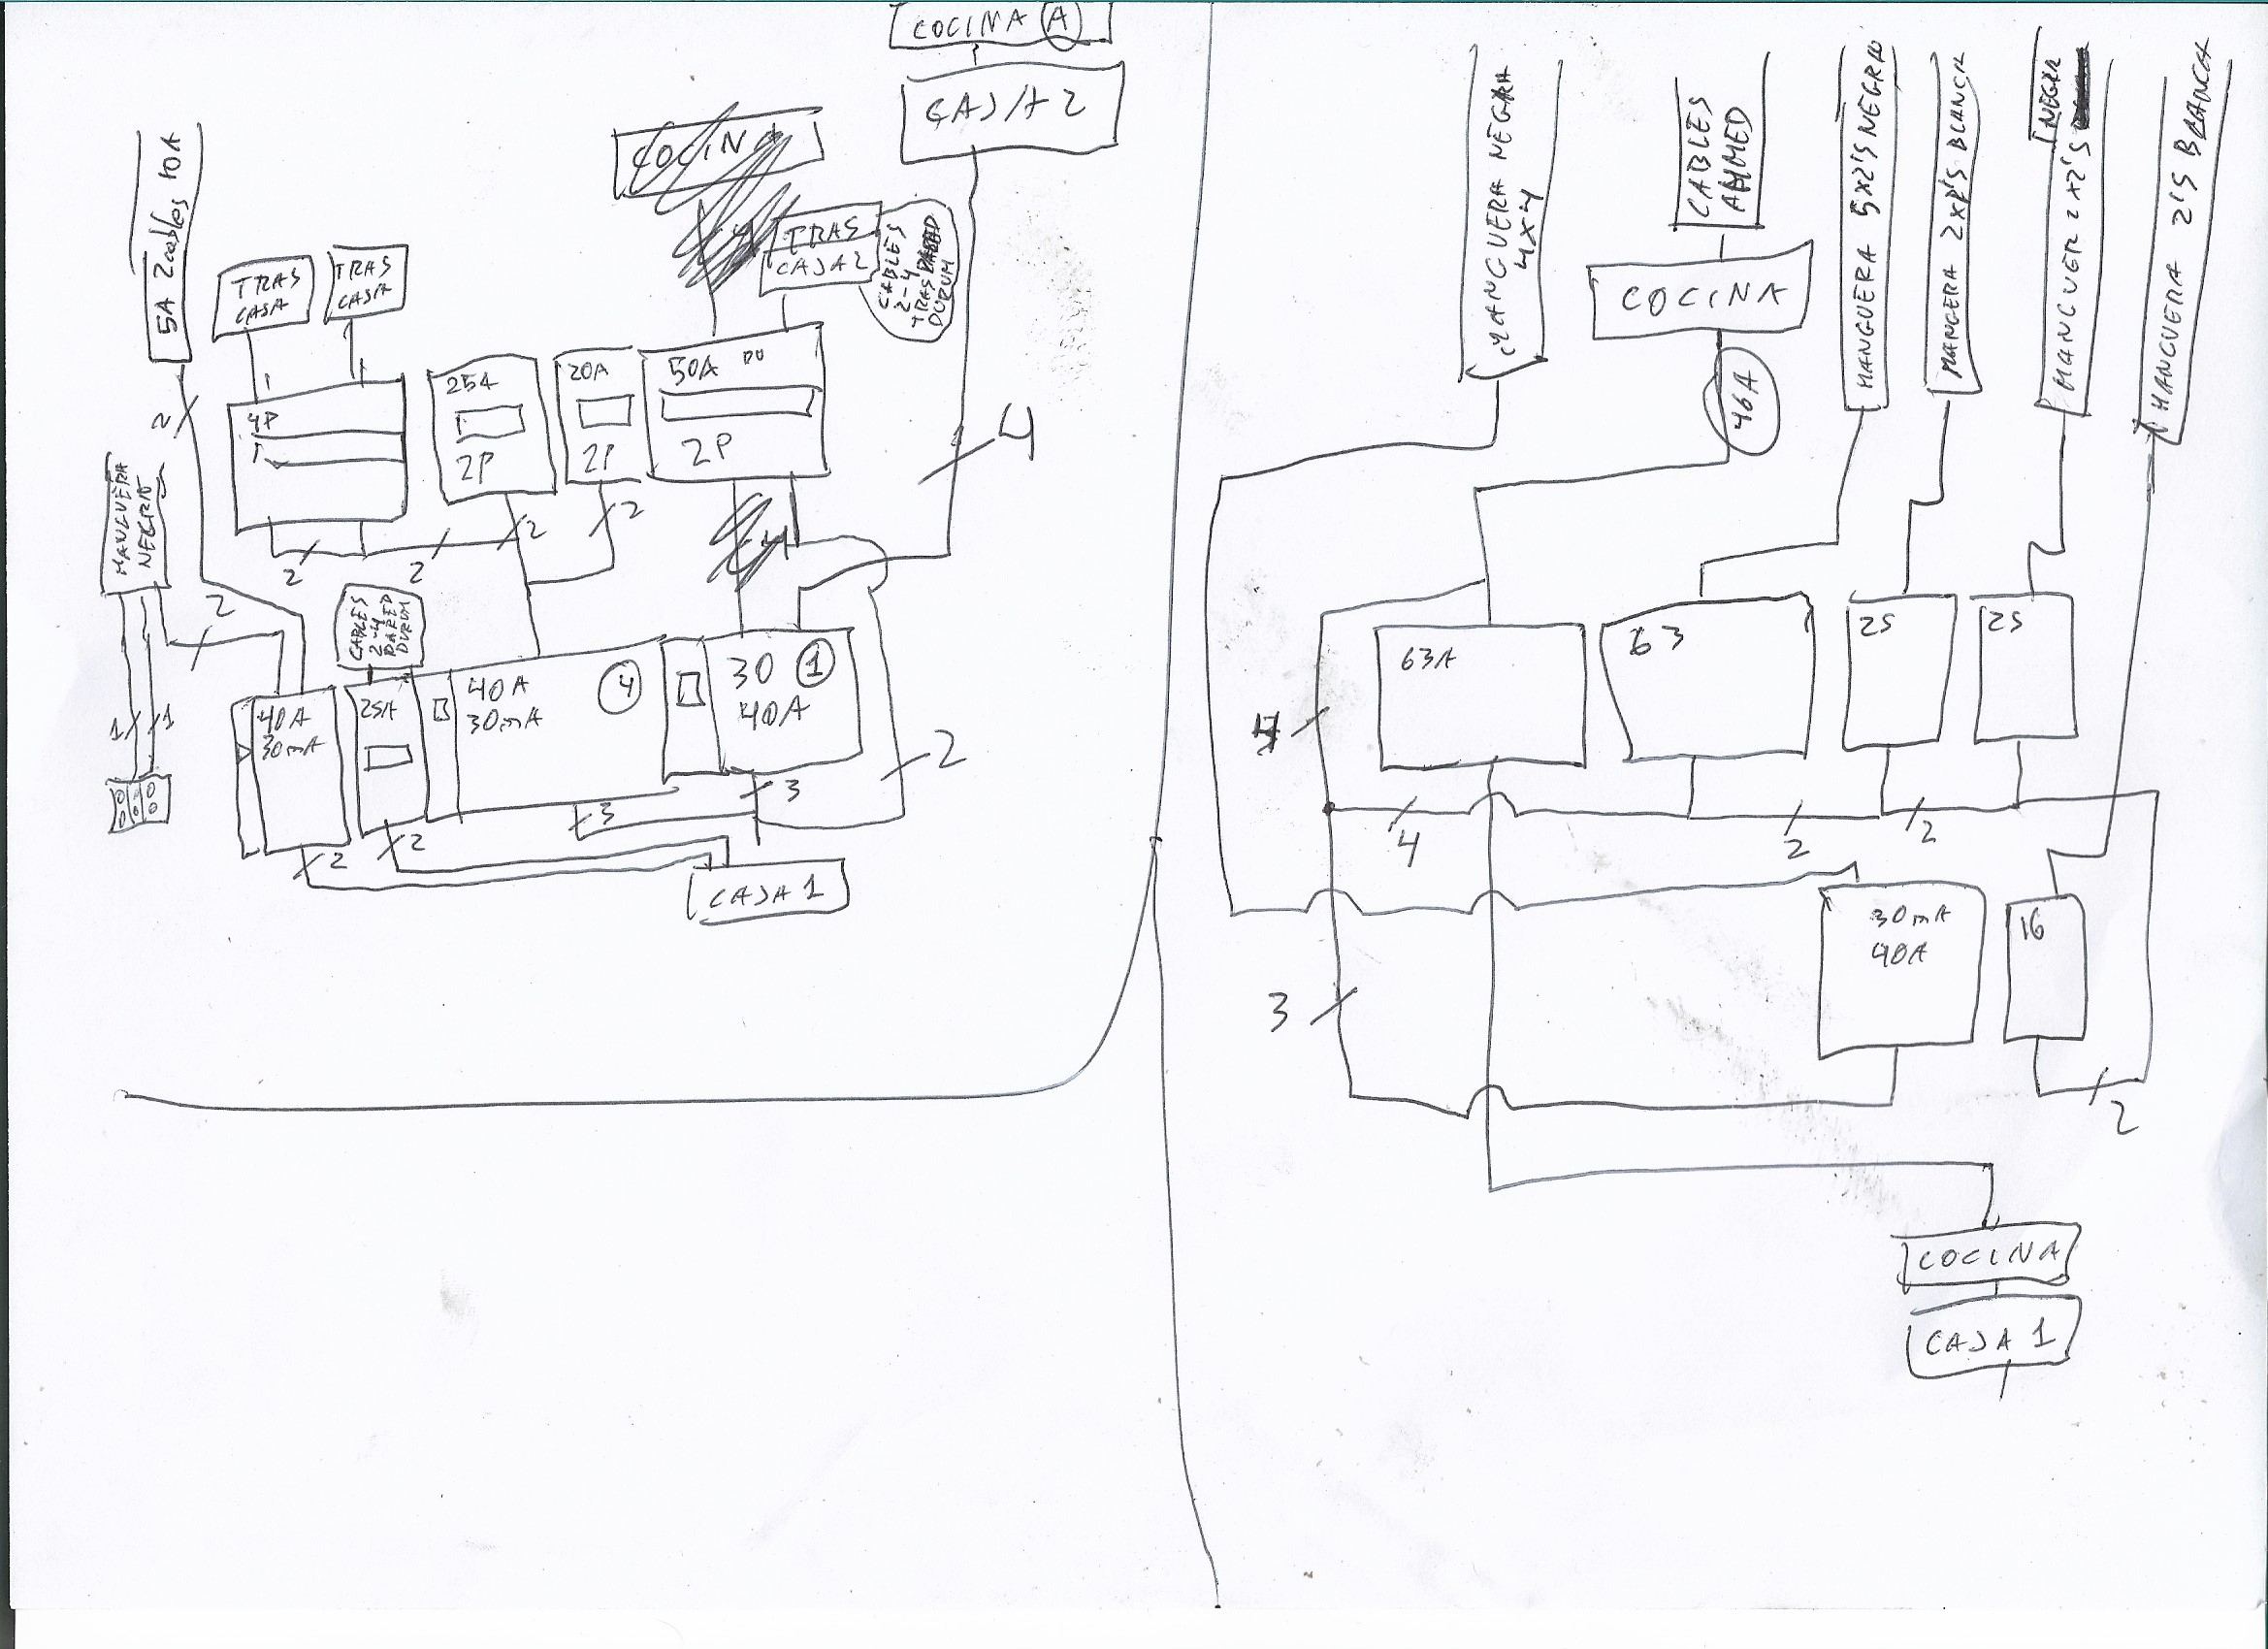 COCINA A
CAJA 2
COCINA
5A 2cables 10A
TRAS
CASA
TRAS
CASA
TRAS
CAJA 2
CABLES
2-4
TRAS
DURUM
4P
25A
2P
20A
2P
50A
2P
4
2
2
2
2
2
4
MANGUERA
NEGRA
2
1
1
CABLES
2-4
PARED
DURUM
40A
30mA
25A
40A
30mA
4
30
40A
1
2
3
3
2
2
CAJA 1
MANGUERA NEGRA
4x4
CABLES
AHMED
COCINA
46A
MANGUERA 5x2'5 NEGRA
MANGERA 2x2'5 BLANCA
MANGUER 2x2'5
NEGRA
MANGUERA 2'5 BLANCA
63A
63
25
25
4
4
2
2
30mA
40A
16
3
2
COCINA
CAJA 1